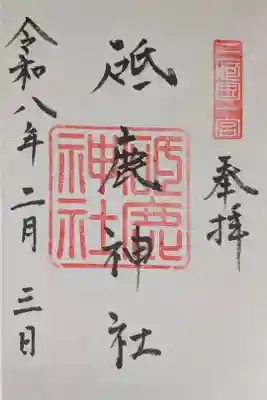 三河國一宮
奉拝
砥鹿神社
砥鹿神社
令和八年二月三日